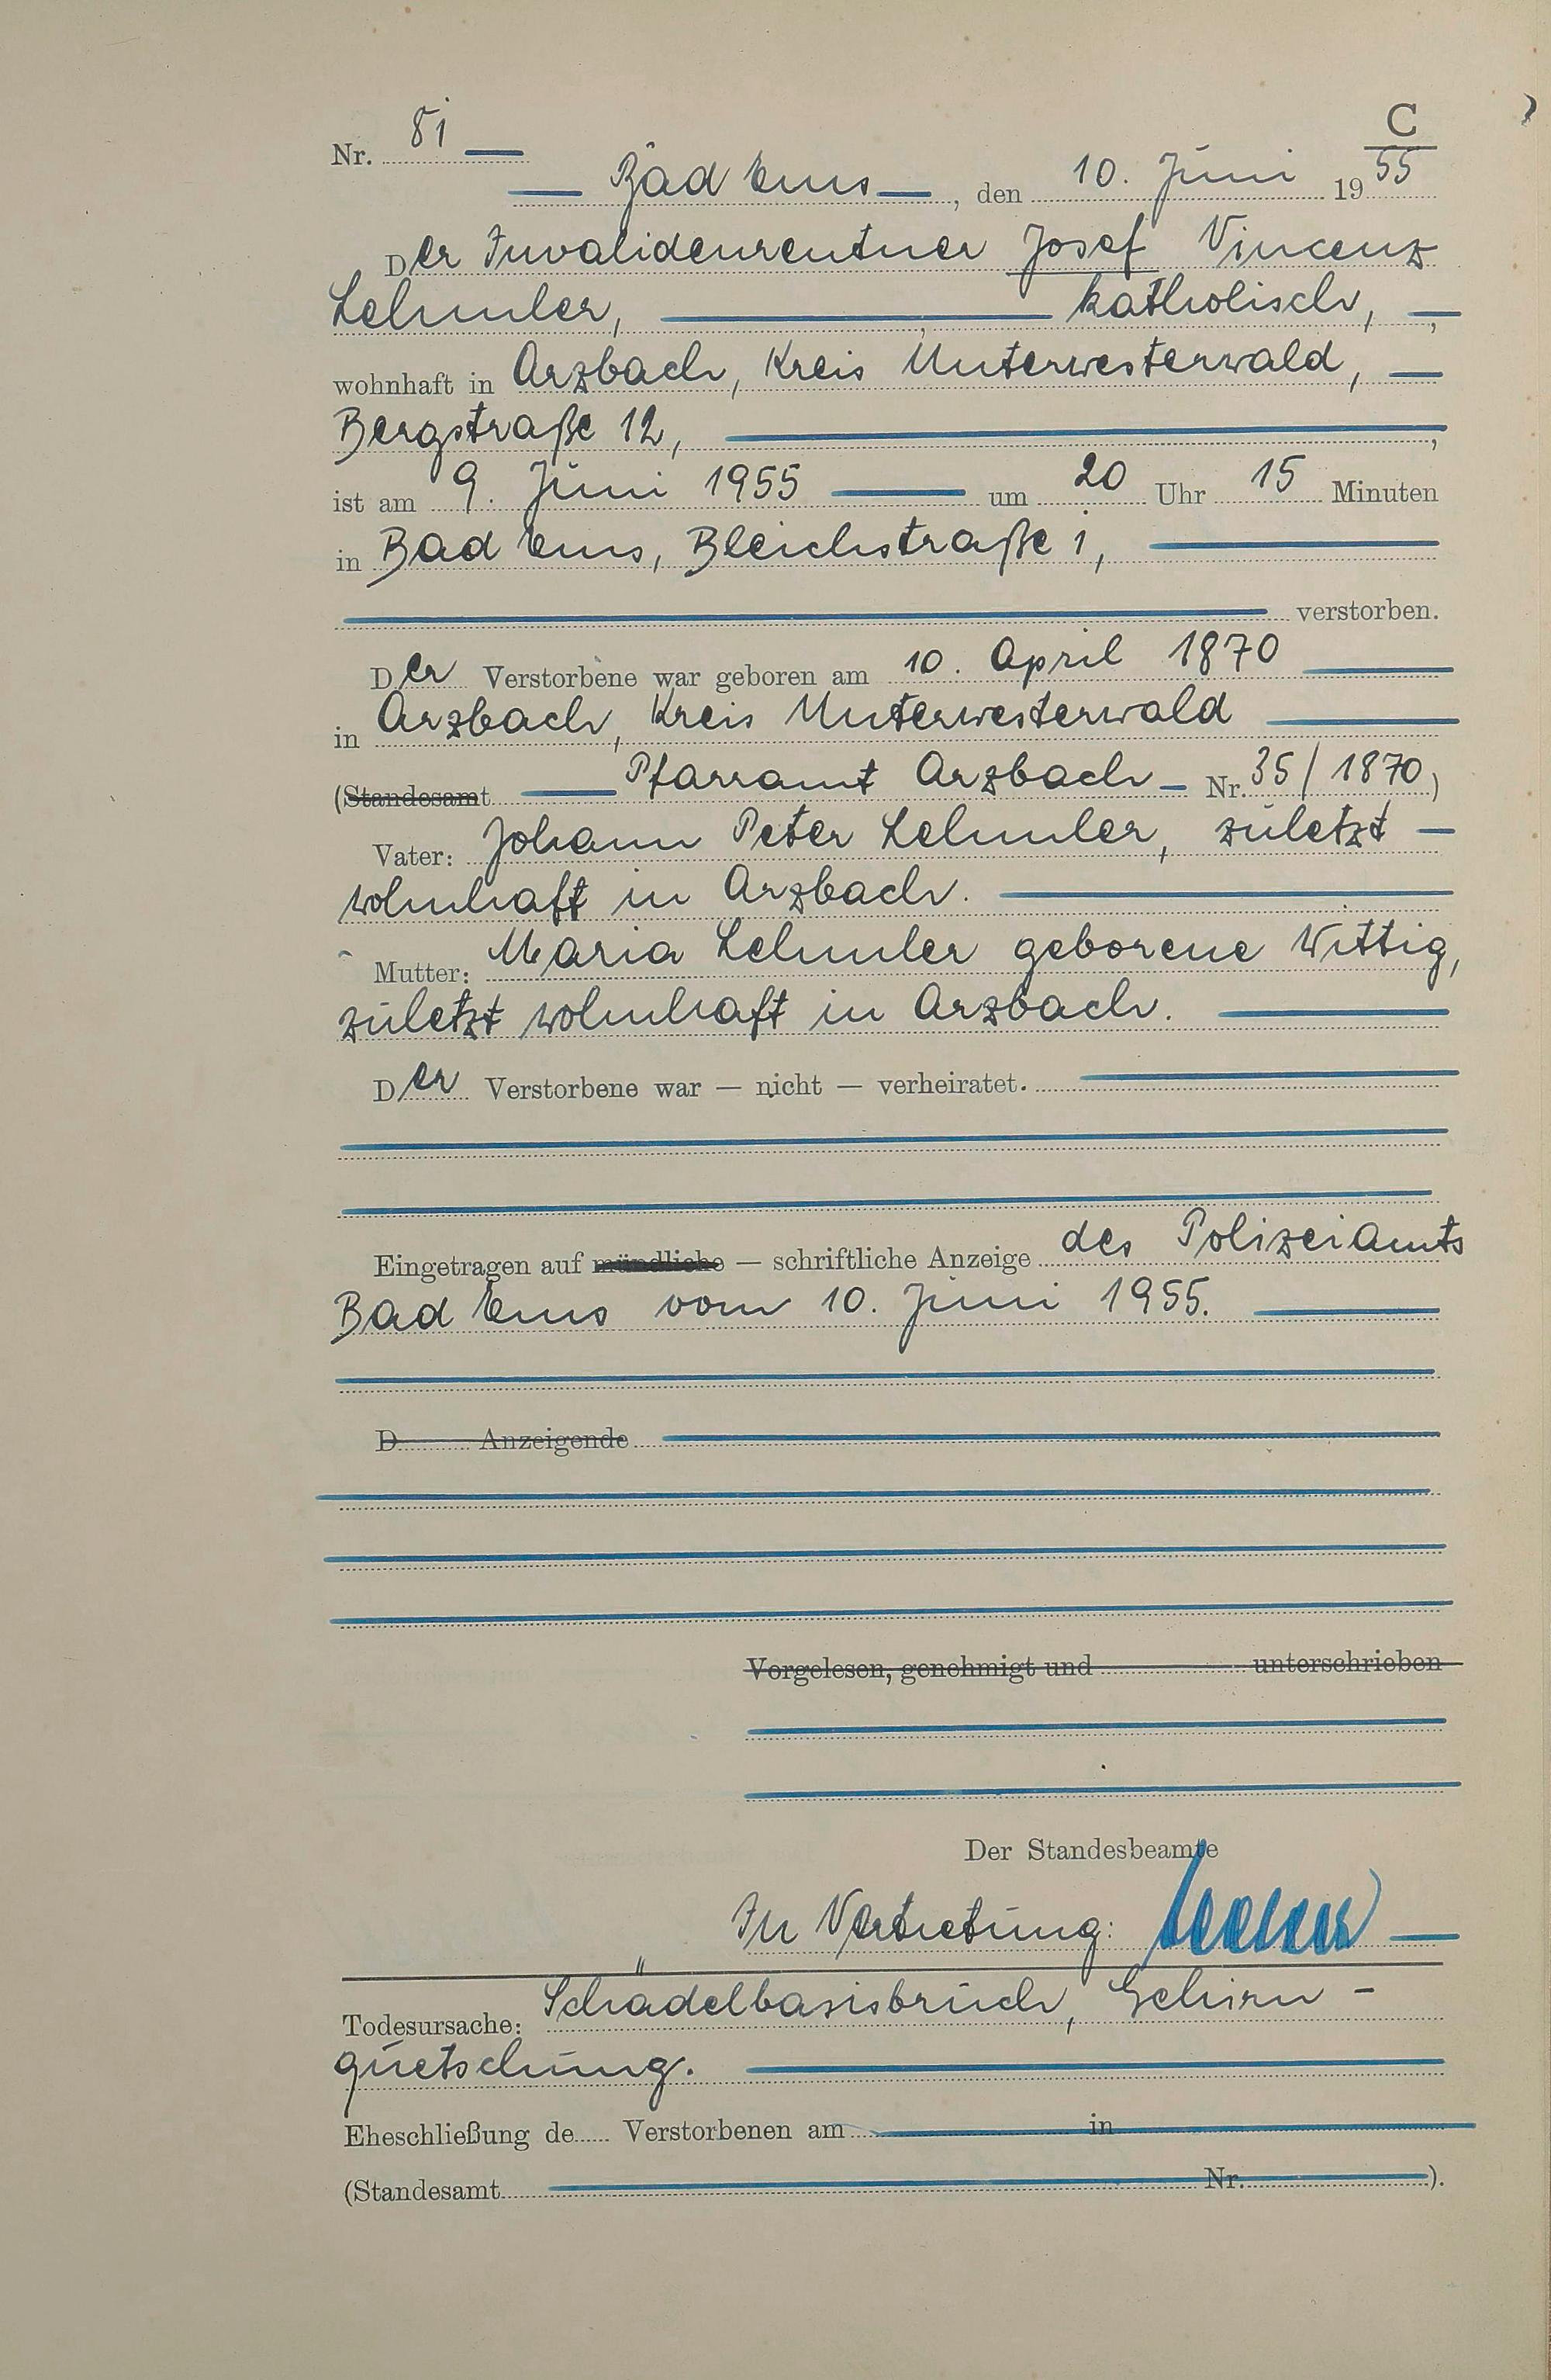 C
Nr. 81
Bad Ems, den 10. Juni 1955
Der Invalidenrentner Josef Vincenz
Lehmler, katholisch,
wohnhaft in Arzbach, Kreis Unterwesterwald,
Bergstraße 12,
ist am 9. Juni 1955 um 20 Uhr 15 Minuten
in Bad Ems, Bleichstraße 1,
verstorben.
Der Verstorbene war geboren am 10. April 1870
in Arzbach, Kreis Unterwesterwald
(Standesamt Pfarramt Arzbach Nr. 35/1870)
Vater: Johann Peter Lehmler, zuletzt
wohnhaft in Arzbach.
Mutter: Maria Lehmler geborene Wittig,
zuletzt wohnhaft in Arzbach.
Der Verstorbene war — nicht — verheiratet.
Eingetragen auf mündliche — schriftliche Anzeige des Polizeiamts
Bad Ems vom 10. Juni 1955.
D Anzeigende
Vorgelesen, genehmigt und unterschrieben
Der Standesbeamte
In Vertretung:
Todesursache: Schädelbasisbruch, Gehirn-
quetschung.
Eheschließung de Verstorbenen am in
(Standesamt Nr. ).